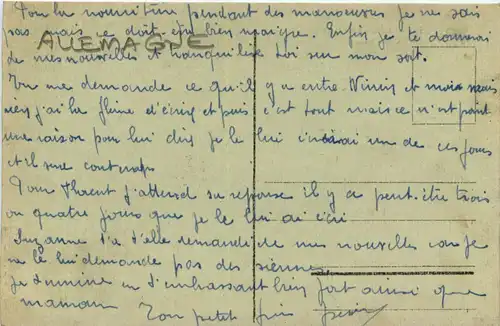 nourriture pendant des manoeuvres je ne sais
pas mais ce doit être bien maigre. Enfin je te donnerai
ALLEMAGNE
de mes nouvelles et tranquilise toi sur mon sort.
Tu me demande ce qu'il y a entre Ninis et moi mais
rien j'ai la flème d'écrire et puis c'est tout mais ce n'est point
une raison pour lui dis je le lui écrirai un de ces jours
et il sera content
Pour j'attend sa reponse il y a peut-être trois
ou quatre jours que je le lui ai écri
Suzanne t'a t'elle demandé de mes nouvelles car je
ne le lui demande pas des siennes
Je termine en t'embrassant bien fort ainsi que
maman Ton petit